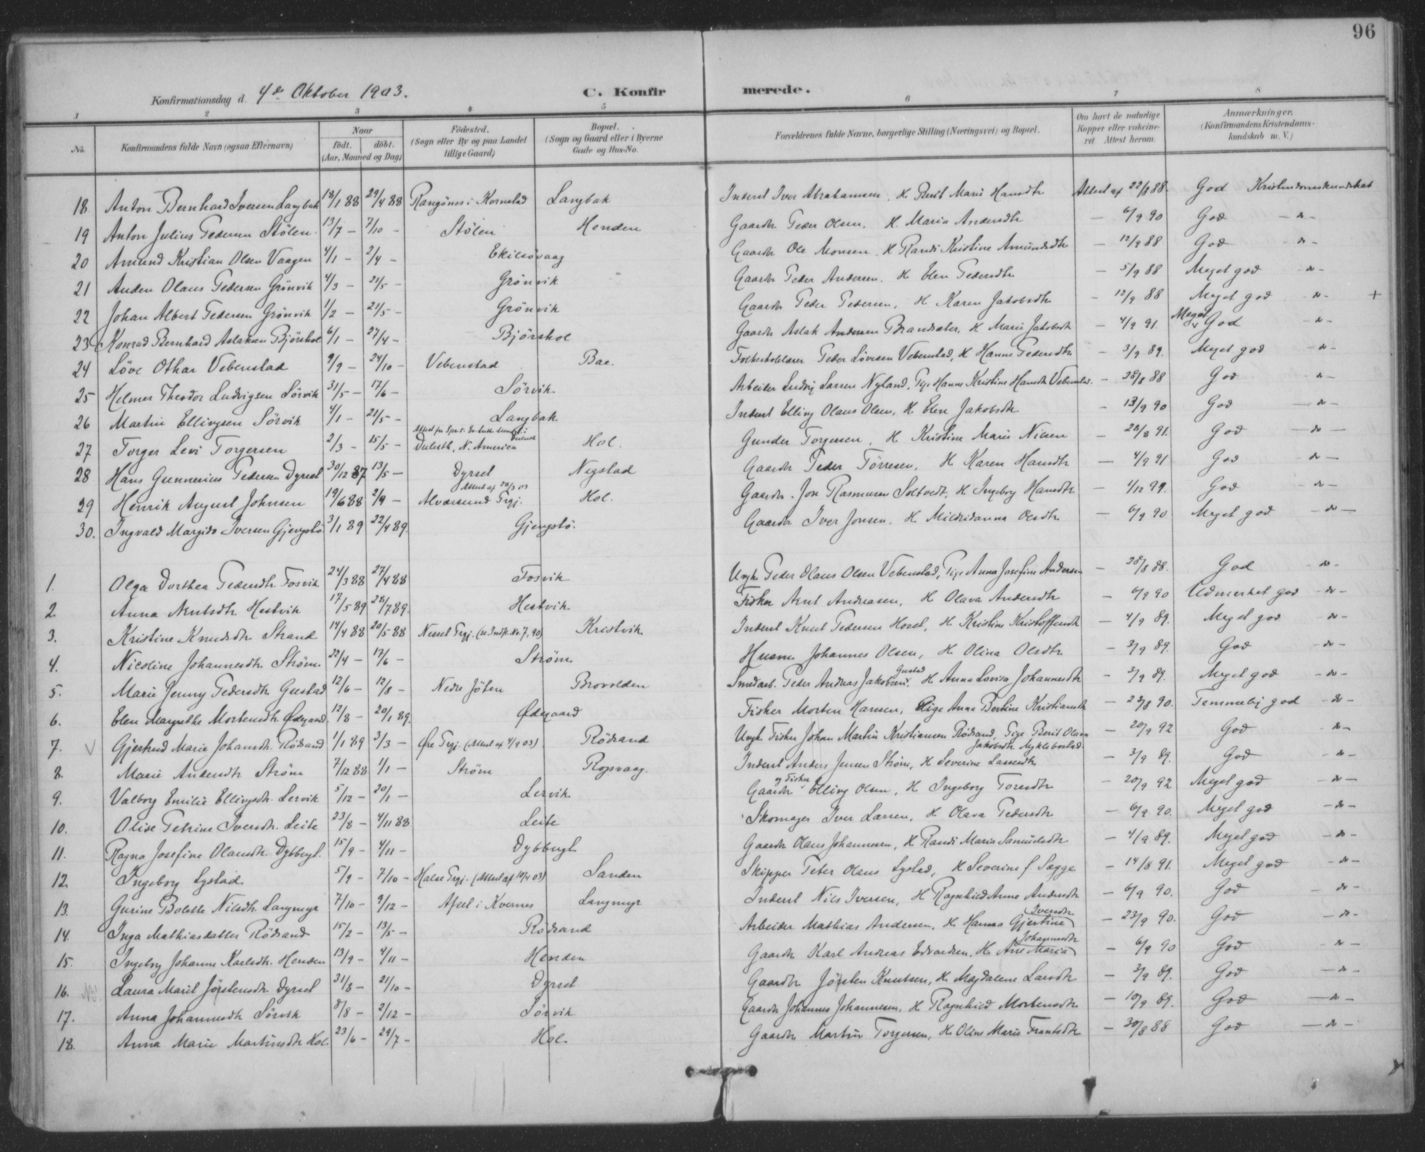 96
Konfirmationsdag d. 4de Oktober 1903. C. Konfirmerede.
1 2 3 4 5 6 7 8
No. Konfirmandens fulde Navn (ogsaa Efternavn) Naar født, døbt. (Aar, Maaned og Dag) Fødested. (Sogn eller By og paa Landet tillige Gaard) Bopæl. (Sogn og Gaard eller i Byerne Gade og Hus-No. Forældrenes fulde Navne, borgerlige Stilling (Næringsvei) og Bopæl. Om havt de naturlige Kopper eller vaccineret Attest herom. Anmærkninger. (Konfirmandens Kristendomskundskab m. V.)
18 Anton Bernhard Iversen Langbak 29/4 88 i Kornstad Langbak Inderst Iver Abrahamsen, H. Marit Hansdtr Attest af 22/8 88. God Kristendomskundskab
19 Anton Julius Pedersen Stölen 13/7 – 7/10 – Stölen Henden Gaardbr Peder Olsen, H. Maria Andersdtr – 6/9 90 God – " –
20 Amund Kristian Olsen Vaagen 4/1 – 2/4 – Ekilsövaag Gaardbr Ole Monsen, H. Randi Kristine Amundsdtr – 12/9 88 God – " –
21 Anders Olaus Pedersen Grönvik 4/3 – 21/5 – Grönvik Gaardbr Peder Andersen, H. Elen Pedersdtr – 5/9 88 Meget god – " –
22 Johan Albert Pedersen Grönvik 1/2 – 21/5 – Grönvik Gaardbr Peder Pedersen, H. Karen Jakobsdtr – 12/9 88 Meget god – " – +
23 Konrad Bernhard Aslaksen Björshol 6/1 – 27/4 – Björshol Gaardbr Aslak Andersen Brandsæter, H. Marie Jakobsdtr – 4/9 91. Meget God – " –
24 Löve Othar Vebenstad 9/9 – 24/10 – Vebenstad Bae. Folkeholder Peder Lövesen Vebenstad, H. Hanne Pedersdtr – 3/9 89. Meget god – " –
25 Helmer Theodor Ludvigsen Sörvik 31/5 – 17/6 – Sörvik. Arbeider Ludvig Larsen Nyland, Pige Hanna Kristine Hansdtr Vebenstad. – 28/8 88 God – " –
26 Martin Ellingsen Sörvik 4/1 – 21/5 – Langbak Inderst Elling Olaus Olsen, H. Elen Jakobsdtr – 13/9 90 God – " –
27 Torger Levi Torgersen 2/3 – 15/5 – Duluth, N. America Hol. Gunder Torgersen, H. Kristine Marie Nilsen – 28/8 91. God – " –
28 Hans Gunnerius Pedersen Dyrset 30/12 87 13/5 – Dyrset Nystad Gaardbr Peder Törresen, H. Karen Hansdtr – 4/9 91 God – " –
29 Henrik August Johnsen 19/6 88 2/9 – Alversund Prgj. Hol. Gaardbr. Jon Rasmussen Soltvedt, H. Ingeborg Hansdtr – 4/12 99. God – " –
30. Ingvald Margido Iversen Gjengstö 3/1 89 22/4 89. Gjengstö. Gaardbr Iver Jonsen, H. Mildridanna Olsdtr – 6/9 90 Meget god – " –
1. Olga Dorthea Pedersdtr Fosvik 24/3 88 27/4 88 Fosvik Ungk. Peder Olaus Olsen Vebenstad, Pige Anna Josefine Andersen – 28/8 88. God – " –
2. Anna Arntsdtr Hestvik 17/5 89 28/7 89. Hestvik Fisker Arnt Andreasen, H. Olava Andersdtr – 6/9 90 Udmerket god – " –
3. Kristine Knudsdtr Strand 14/4 88 20/5 88 Nesset Prgj. Krestvik Inderst Knut Pedersen Horet, H. Kristine Kristoffersdtr – 4/9 89. Meget god – " –
4. Nicoline Johannesdtr Ström 22/4 – 17/6 – Ström Husm. Johannes Olsen, H. Olina Olsdtr – 3/9 89. God – " –
5. Marie Jenny Pedersdtr Gustad 12/6 – 12/8 – Nedre Jöten Brovolden Peder Andreas Jakobsen Gustad H. Anna Lovisa Johannesdtr – 3/9 89. Meget god – " –
6. Elen Margrethe Mortensdtr Ödegaard 12/8 – 20/1 89. Ödegaard Fisker Morten Hansen, Pige Anne Bertine Kristiansdtr – 28/8 90. Temmelig god – " –
7. Gjertrud Marie Johansdtr Rödsand 1/1 89 3/3 – Öre Prgj. (Attest af 4/9 03) Rödsand Ungk. Fisker Johan Martin Kristiansen Rödsand, Pige Beret Olava Jakobsdtr Myklebostad – 20/9 92 God – " –
8. Marie Andersdtr Ström 7/12 88 1/1 – Ström Ropvaag. Inderst Anders Jensen Ström, H. Severine Larsdtr – 3/9 89. God – " –
9. Valborg Emilie Ellingsdtr. Lervik 5/12 – 20/1 – Lervik Gaardbr og Fisker Elling Olsen, H. Ingeborg Toresdtr – 20/9 92 Meget god – " –
10. Olise Petrine Iversdtr. Leite 23/8 – 4/11 88 Leite Skomager Iver Larsen, H. Olava Pedersdtr – 6/9 90. Meget god – " –
11. Ragna Josefine Olausdtr. Dybbugt 15/9 – 4/11 – Dybbugt Gaardbr Olaus Johannesen, H. Randi Maria Samuelsdtr – 4/9 89. Meget god – " –
12. Ingeborg Lystad 5/9 – 7/10 – Halse Prgj. (Attest af 14/9 03) Sanden Skipper Peter Olaus Lystad, H. Severine f Sagge – 14/8 91. Meget god – " –
13. Gurine Bolette Nilsdtr. Langmyr 7/10 – 9/12 – Aksel i Kvernes Langmyr Inderst Nils Iversen, H. Ragnhild Anne Andersdtr – 6/9 90. God – " –
14. Inga Mathiasdatter Rödsand 15/2 – 13/5 – Rödsand Arbeider Mathias Andersen, H. Hanna Gjertine Iversdtr – 23/9 90. God – " –
15. Ingeborg Johanna Karlsdtr. Henden 13/9 – 4/11 – Henden Gaardbr Karl Andreas Edvardsen, H. Ane Maria Johannesdtr – 6/9 90 God – " –
16. Laura Marit Jörstensdtr Dyrset 31/8 – 21/10 – Dyrset Gaardbr Jörsten Knutsen, H. Magdalene Larsdtr – 3/9 89. God – " –
17. Anna Johannesdtr Sörvik 8/8 – 2/12 – Sörvik Gaardbr Johannes Johannesen, H. Ragnhild Mortensdtr – 10/9 89. God – " –
18. Anna Marie Martinsdtr Hol. 23/6 – 29/7 – Hol. Gaardbr Martin Torgersen, H. Oline Marie Frantsdtr – 30/8 88 God – " –